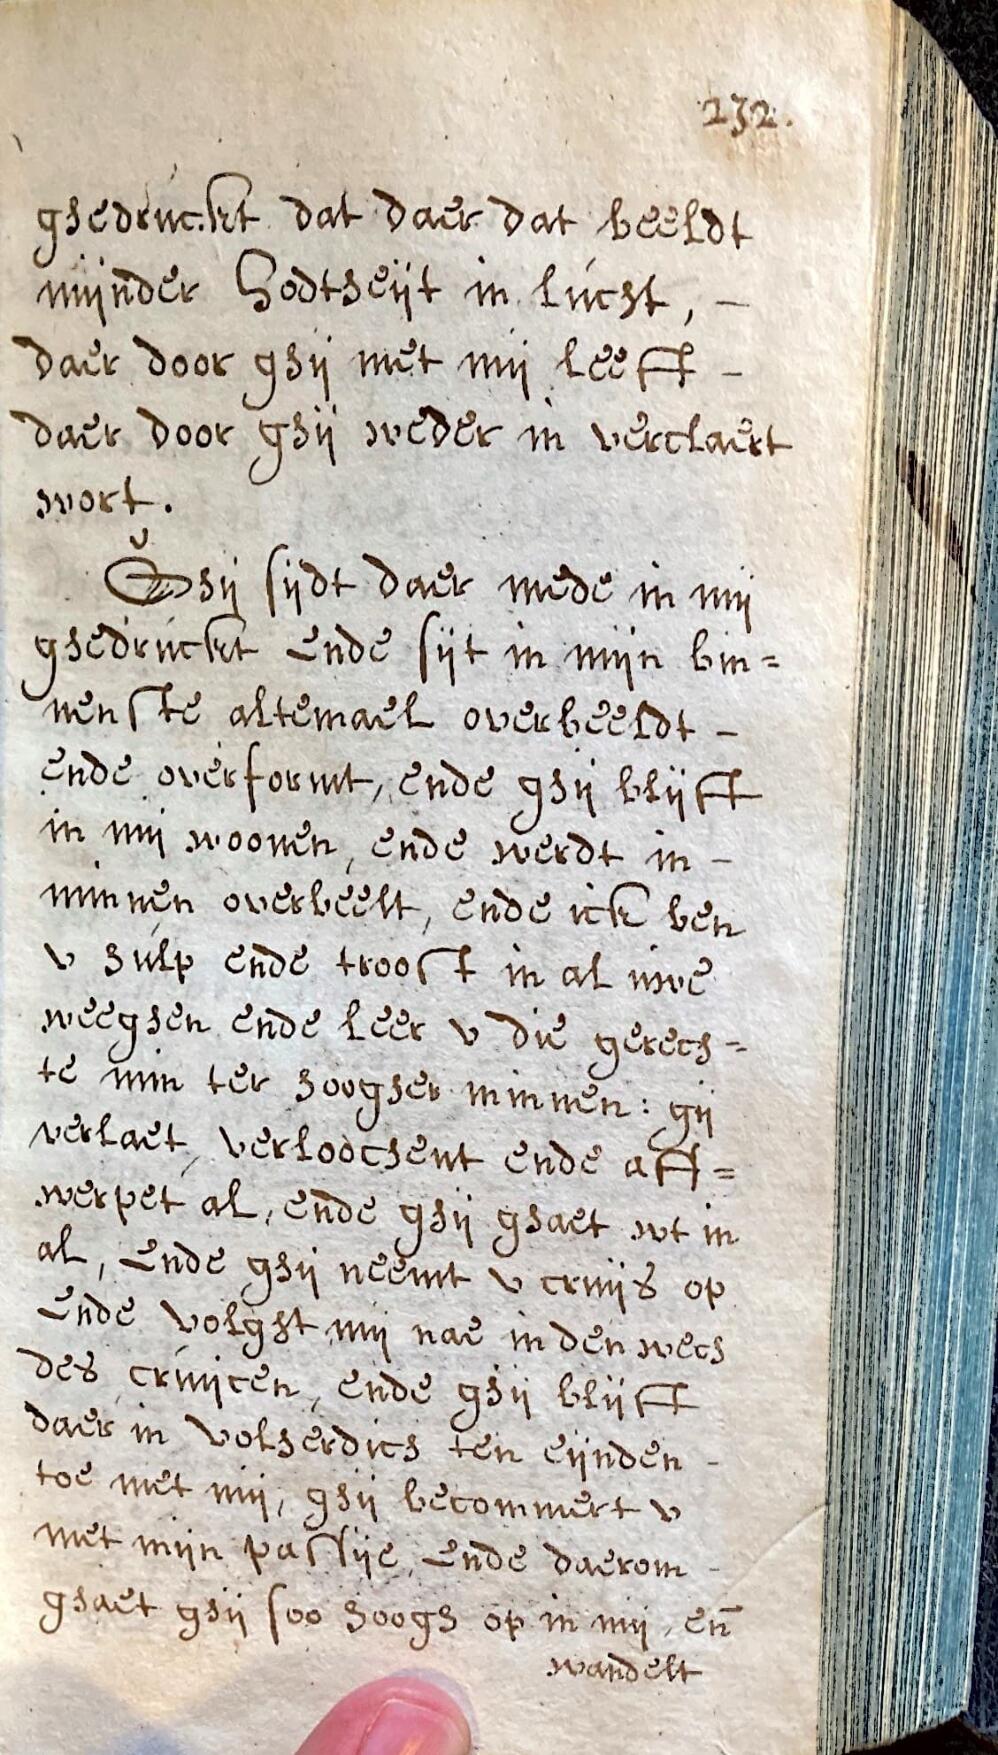 232.
ghedruckt dat daer dat beeldt
mijnder Godtheijt in lucht, –
daer door ghij met mij leefft –
daer door ghij weder in verclaert
wort.
Ghij sijdt daer mede in mij
ghedruckt ende sijt in mijn bin=
nenste altemael overbeeldt –
ende overformt, ende ghij blijfft
in mij woonen, ende werdt in –
minnen overbeelt, ende ick ben
v hulp ende troost in al uwe
weeghen ende leer v die gerech=
te min ter hoogher minnen: gij
verlaet, verloochent ende aff=
werpet al, ende ghij ghaet wt in
al, ende ghij neemt v cruijs op
ende volght mij nae in den wech
des cruijcen, ende ghij blijfft
daer in volherdich ten eijnden –
toe met mij, ghij becommert v
met mijn passije, ende daerom –
ghaet ghij soo hoogh op in mij, en̄
wandelt